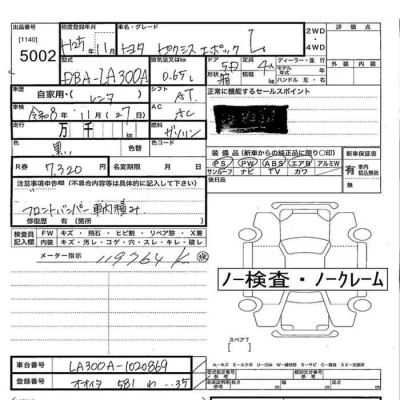 出品番号 初度登録年月 車名・グレード 評価点
[1140] H25年11月 トヨタ ピクシス エポック L 2WD・4WD
5002 外装 内装
型式 排気量又はkg ドア 形状 定員
DBA-LA300A 0.65L 5D 箱 4人
ディーラー・並行
ハンドル 右・左
車歴 自家用・レンタ シフト AT
正常に機能するセールスポイント
車検 令和8年11月(27日) AC AC
走行 万千 燃料 ガソリン
色 黒 色コード
装備品(新車からの純正品に限り○印) 新車保証書
PS PW ABS エアB アルミW 有
サンルーフ ナビ TV カワ 車内積込無
R券 7,320 名変期限 月 日
後日品
注意事項申告欄(不具合内容等は具体的に記入して下さい)
フロントバンパー車内積み
修復歴(有)(箇所)
検査員記入欄 FW キズ・飛石・ヒビ割・リペア跡・X要
内装 キズ・汚石・コゲ・穴・スレ・キレ・破レ
メーター指示 119764K
ノー検査・ノークレーム
スペアT
A…キズ E…エクボ U…凹み W…補修跡 S…サビ C…腐食 XX…交換跡
車台番号 LA300A-1020869
登録番号 オオイタ 581 わ ・・35